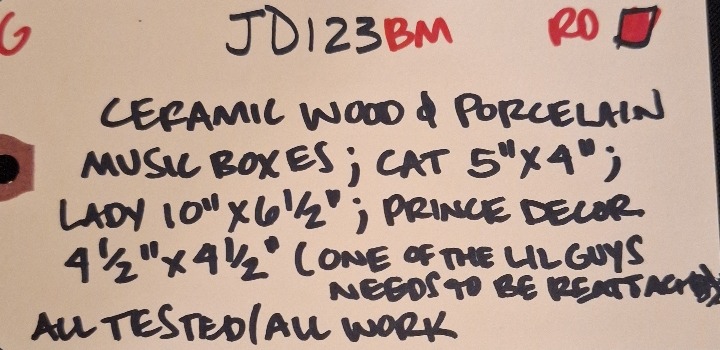 G JD123BM RD
CERAMIC WOOD & PORCELAIN
MUSIC BOXES; CAT 5"X4";
LADY 10"X6 1/2"; PRINCE DECOR
4 1/2"X4 1/2" (ONE OF THE LIL GUYS
NEEDS TO BE REATTACHED)
ALL TESTED/ALL WORK